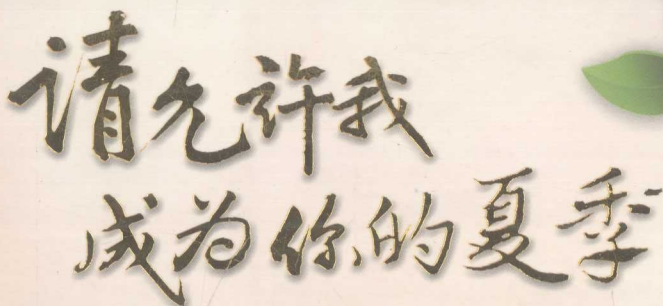 请允许我
成为你的夏季